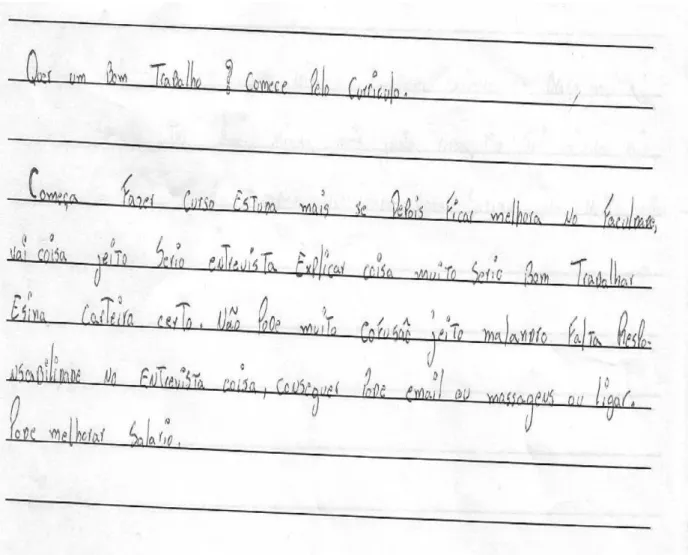 Quer um Bom Trabalho ? Comece Pelo Curriculo.
Começa Fazer Curso Estuda mais se Depois Ficar melhora No Faculdade,
vai coisa jeito Serio entrevista Explicar coisa muito Serio Bom Trabalhar
Esina Carteira certo. Não Pode muito cofusaõ jeito malandro Falta Respo-
nscabilidade No Entrevista coisa, conseguer Pode email ou massagens ou ligar.
Pode melhorar Salario.